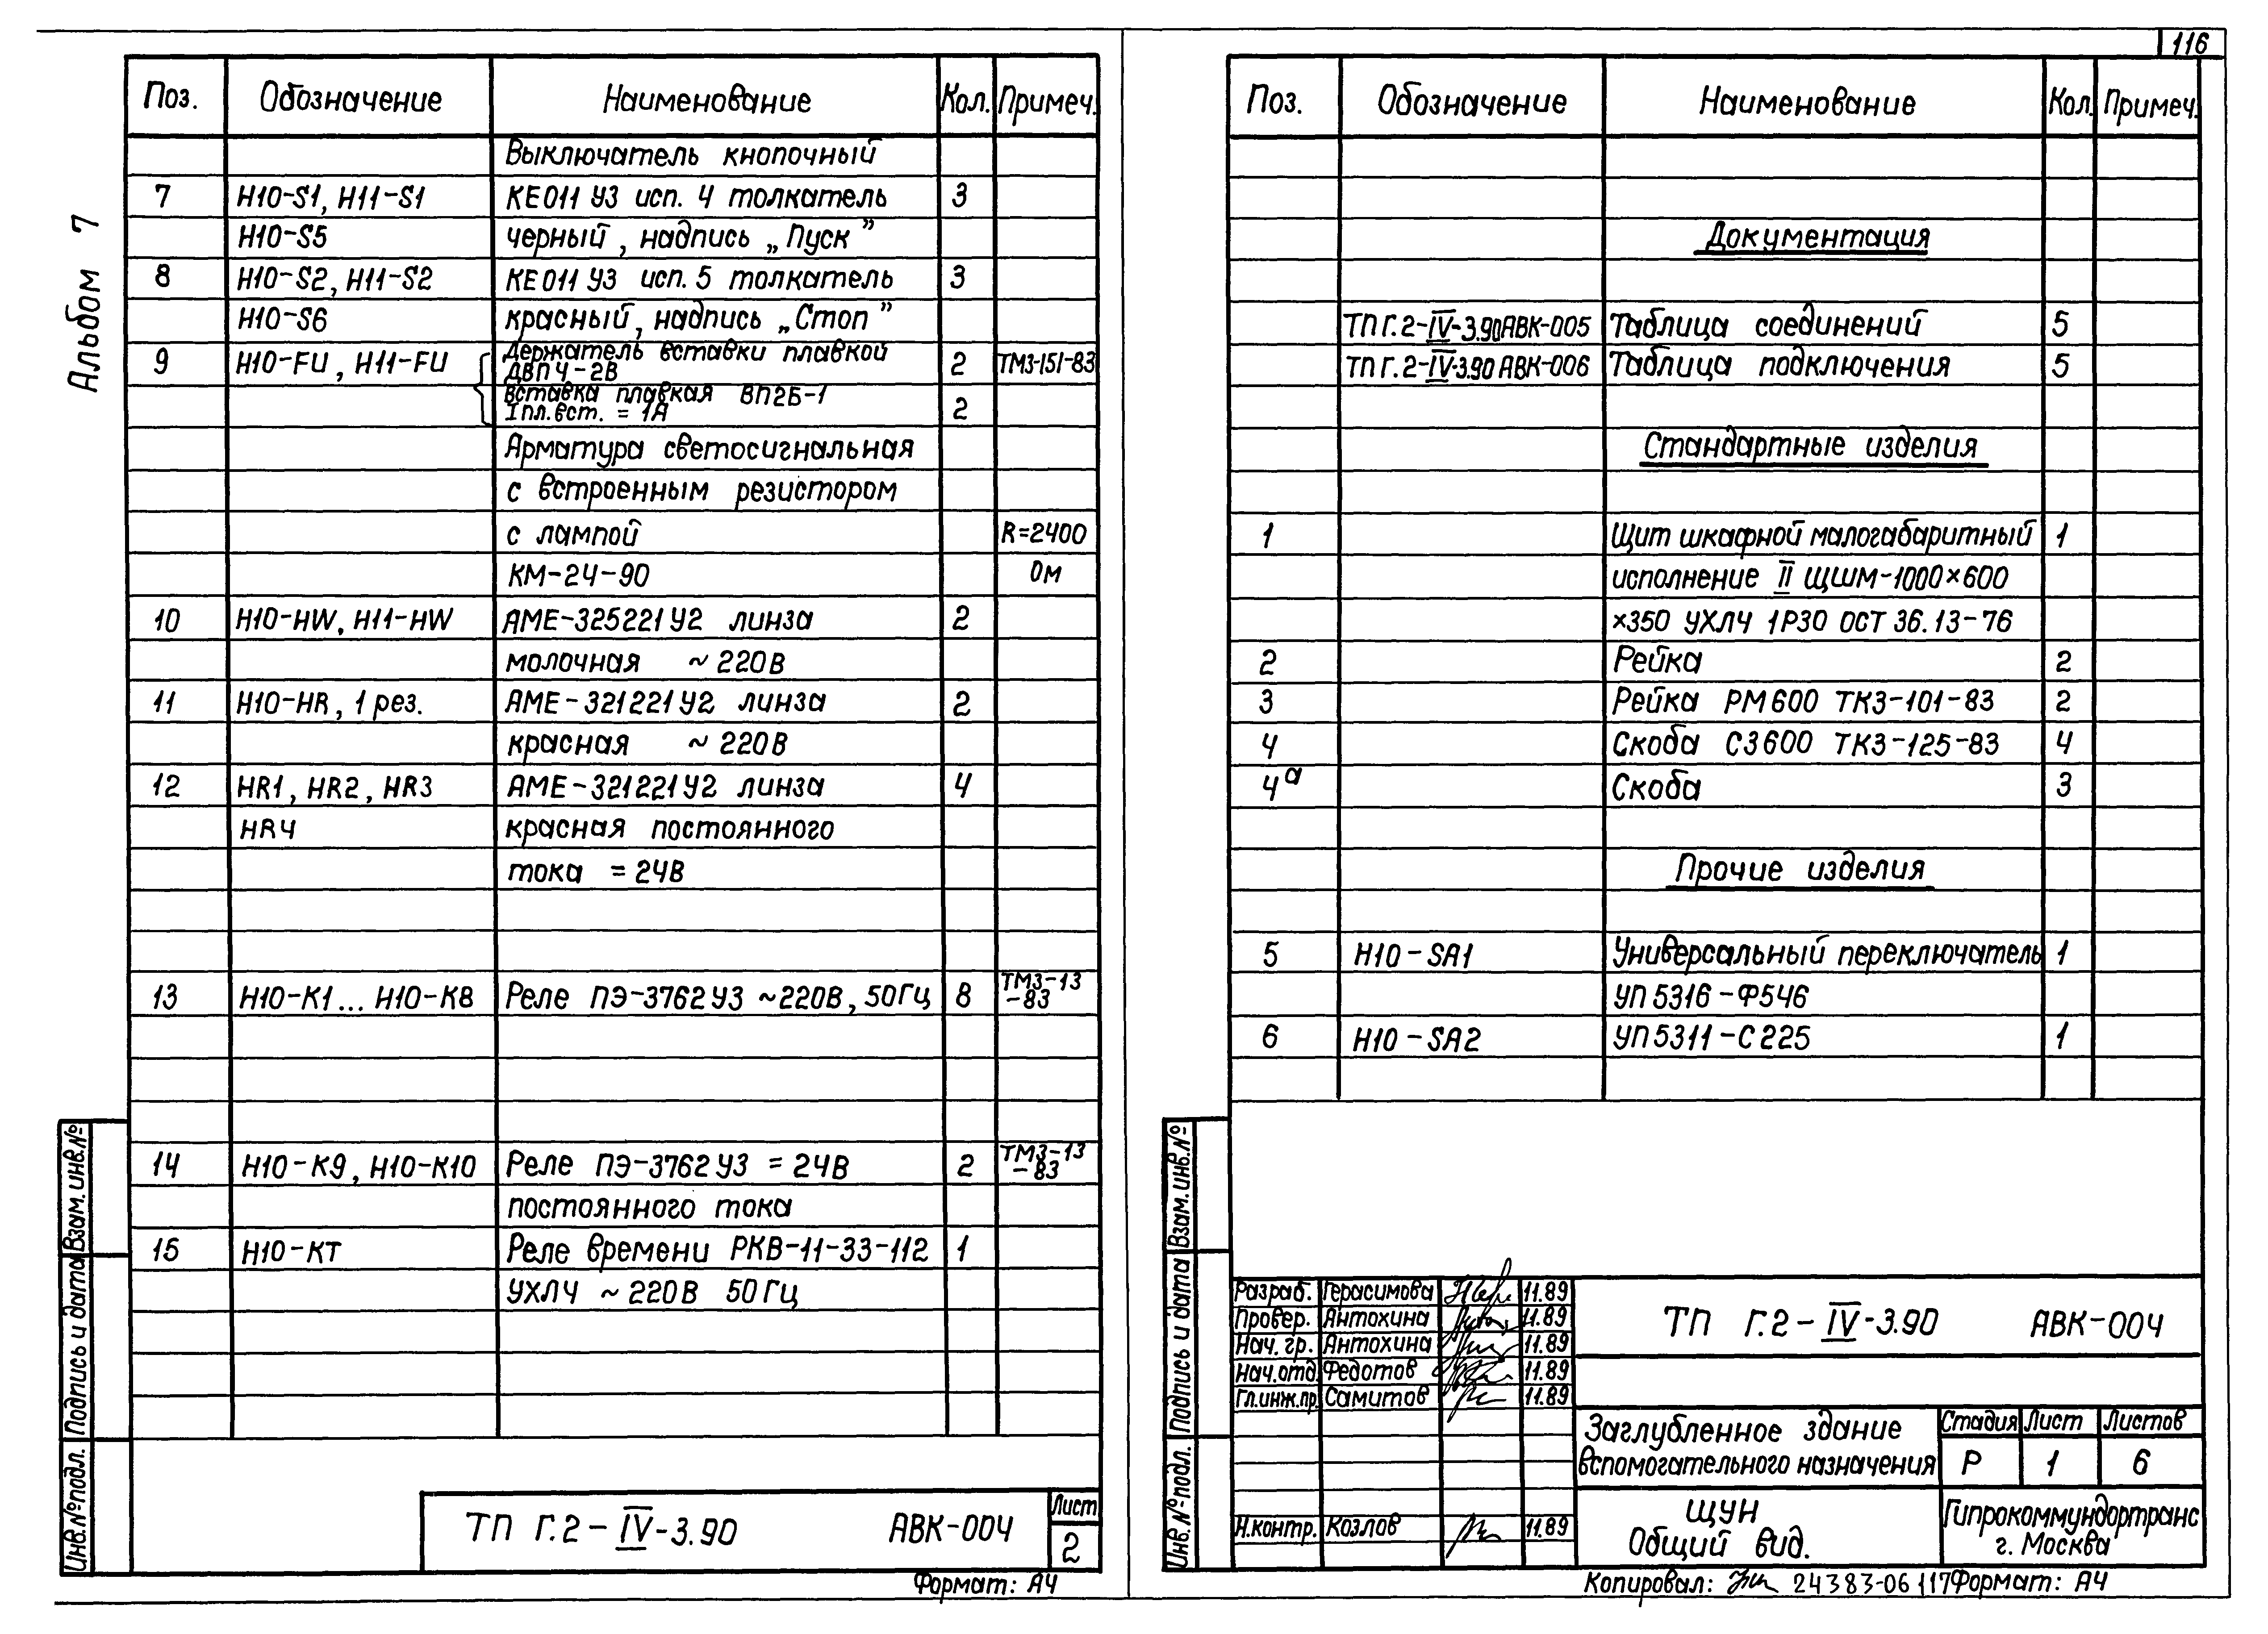 116
Альбом 7
Поз. Обозначение Наименование Кол. Примеч.
Выключатель кнопочный
7 Н10-S1, Н11-S1 КЕ011 У3 исп. 4 толкатель 3
Н10-S5 черный, надпись „Пуск”
8 Н10-S2, Н11-S2 КЕ011 У3 исп. 5 толкатель 3
Н10-S6 красный, надпись „Стоп”
9 Н10-FU, Н11-FU Держатель вставки плавкой
ДВП4-2В 2 ТМ3-151-83
Вставка плавкая ВП2Б-1
Iпл.вст. = 1А 2
Арматура светосигнальная
с встроенным резистором
с лампой R=2400
КМ-24-90 Ом
10 Н10-HW, Н11-HW АМЕ-325221У2 линза 2
молочная ~220В
11 Н10-HR, 1 рез. АМЕ-321221У2 линза 2
красная ~220В
12 HR1, HR2, HR3 АМЕ-321221У2 линза 4
HR4 красная постоянного
тока =24В
13 Н10-К1... Н10-К8 Реле ПЭ-3762У3 ~220В, 50Гц 8 ТМ3-13
-83
14 Н10-К9, Н10-К10 Реле ПЭ-3762У3 =24В 2 ТМ3-13
-83
постоянного тока
15 Н10-КТ Реле времени РКВ-11-33-112 1
УХЛ4 ~220В 50Гц
Инв.№подл. Подпись и дата Взам.инв.№
ТП Г.2-IV-3.90 АВК-004
Лист
2
Формат: А4
Поз. Обозначение Наименование Кол. Примеч.
Документация
ТП Г.2-IV-3.90АВК-005 Таблица соединений 5
ТП Г.2-IV-3.90АВК-006 Таблица подключения 5
Стандартные изделия
1 Щит шкафной малогабаритный 1
исполнение II ЩШМ-1000×600
×350 УХЛ4 1Р30 ОСТ 36.13-76
2 Рейка 2
3 Рейка РМ600 ТК3-101-83 2
4 Скоба С3600 ТК3-125-83 4
4а Скоба 3
Прочие изделия
5 Н10-SA1 Универсальный переключатель 1
УП5316-Ф546
6 Н10-SA2 УП5311-С225 1
Инв.№подл. Подпись и дата Взам.инв.№
Разраб. Герасимова 11.89
Провер. Антохина 11.89
Нач.гр. Антохина 11.89
Нач.отд. Федотов 11.89
Гл.инж.пр. Самитов 11.89
Н.контр. Козлов 11.89
ТП Г.2-IV-3.90 АВК-004
Заглубленное здание
вспомогательного назначения
Стадия Лист Листов
Р 1 6
ЩУН
Общий вид.
Гипрокоммундортранс
г. Москва
Копировал: 24383-06 117 Формат: А4